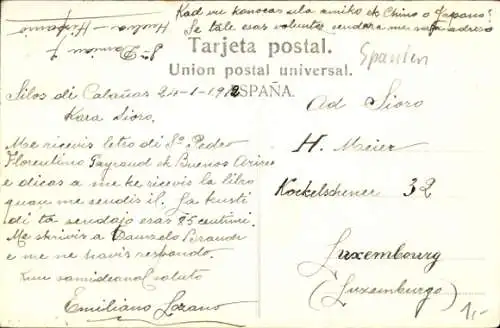 Kad vu konocas ula amiko ek Chino o Japono?
Se tale esas voluntez sendar a me sua adreso
Sro Damian J
Huelva - Hispanio
Tarjeta postal.
Union postal universal.
ESPAÑA.
Spanien
Silos di Calañas 24-1-1912
Kara Sioro.
Me ricevis letro di Sro Pedro
Florentino Payraud ek Buenos Aires
e dicas a me ke ricevis la libro
quan me sendis il. La kusti
di ta sendajo esas 25 centimi.
Me skrivis a Brandt
e me ne havis respondo.
Kun samideanal saluto
Emiliano Lozano
Ad Sioro
H. Meier
32
Luxembourg
(Luxemburgo)
1,-